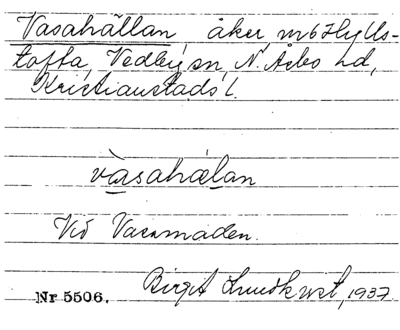 Vasahällan åker, m6 Hylls-
tofta, Vedby sn, N. Åsbo hd,
Kristianstads l.
vàsahælan
Vid Vasamaden.
Birgit Lundkvist, 1937
Nr 5506.